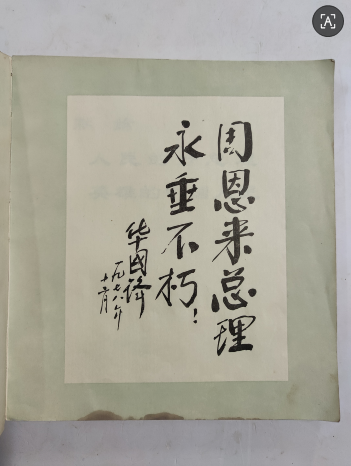 周恩来总理
永垂不朽！
华国锋
一九七八年
十二月